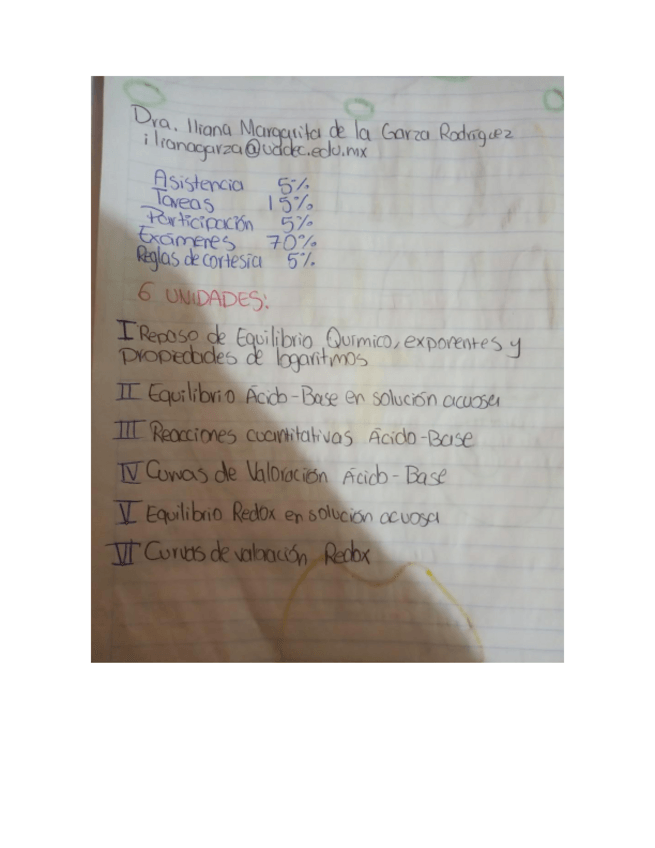 Dra. Iliana Margarita de la Garza Rodríguez
ilianagarza@uadec.edu.mx
Asistencia 5%
Tareas 15%
Participación 5%
Exámenes 70%
Reglas de cortesía 5%
6 UNIDADES:
I Repaso de Equilibrio Químico, exponentes y
propiedades de logaritmos
II Equilibrio Ácido-Base en solución acuosa
III Reacciones cuantitativas Ácido-Base
IV Curvas de Valoración Ácido-Base
V Equilibrio Redox en solución acuosa
VI Curvas de valoración Redox